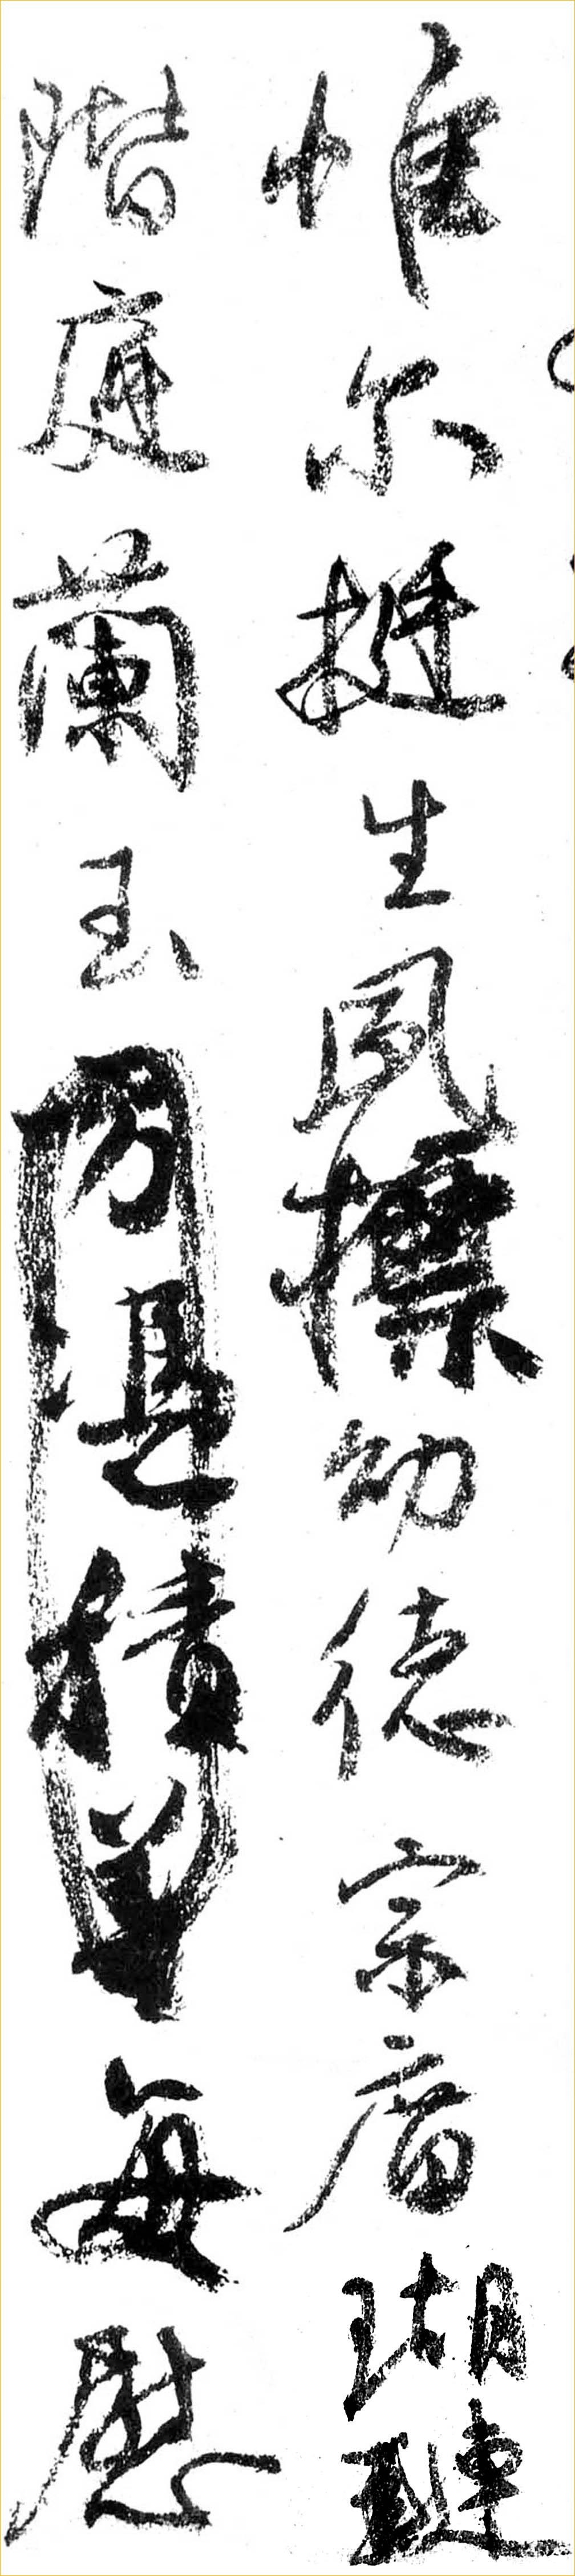 惟尔挺生夙標幼德宗廟瑚璉
階庭蘭玉方憑積善每慰